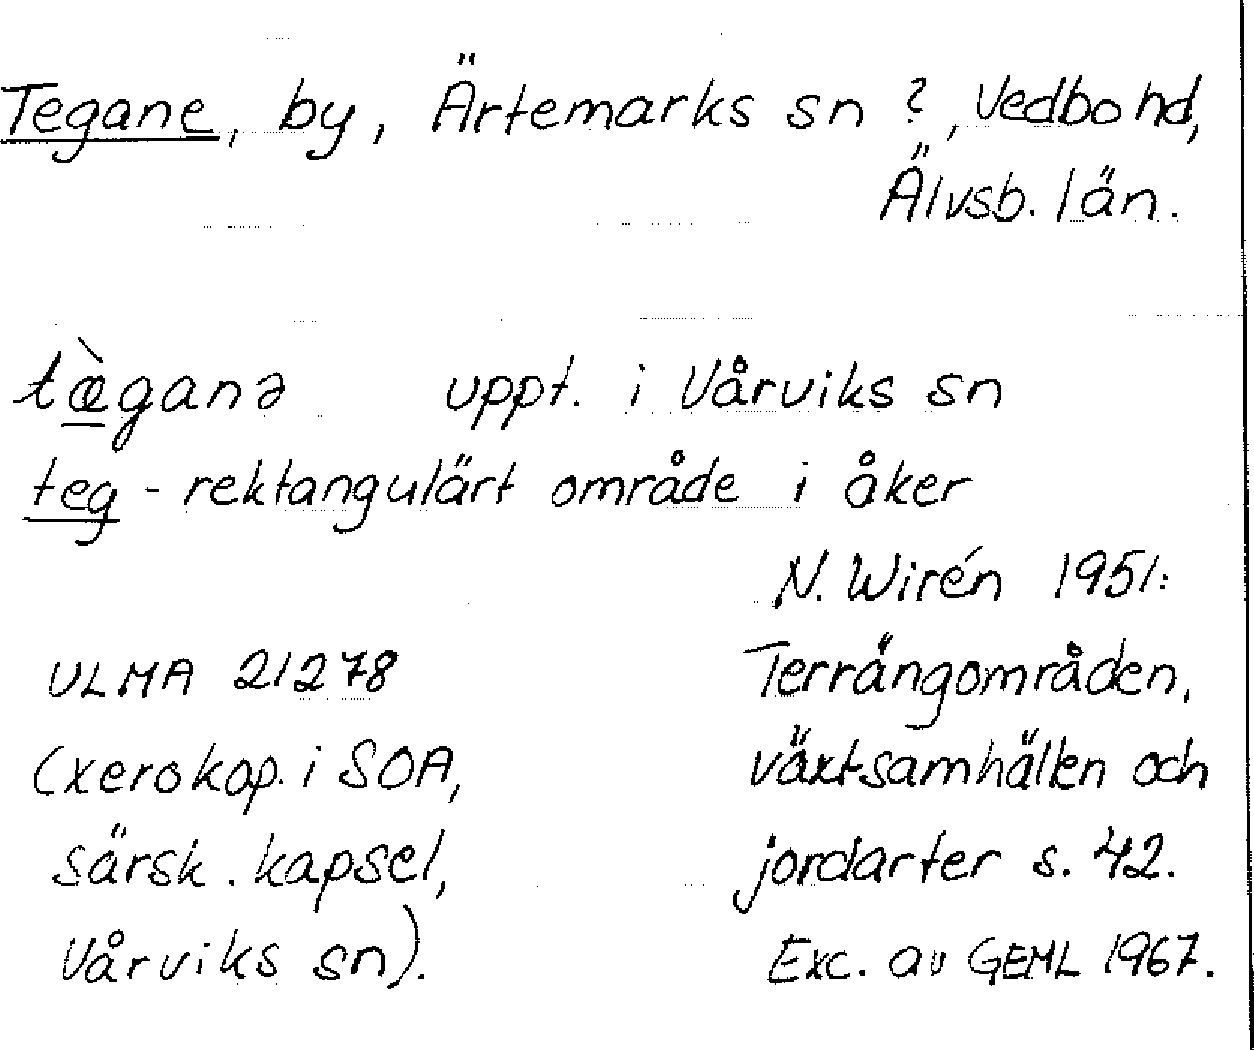 Tegane, by, Ärtemarks sn?, Vedbo hd,
Älvsb. län.
tæ̀ganə uppt. i Vårviks sn
teg - rektangulärt område i åker
N. Wirén 1951:
ULMA 21278 Terrängområden,
(xerokop. i SOA, växtsamhällen och
särsk. kapsel, jordarter s. 42.
Vårviks sn). Exc. av GEHL 1967.